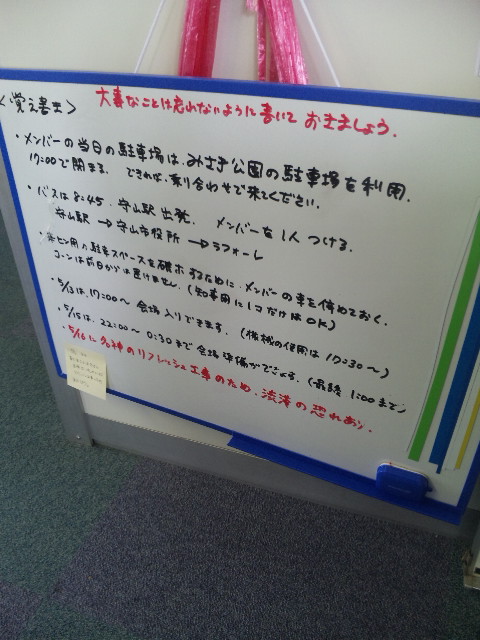 <覚え書き>
大事なことは忘れないように書いておきましょう.
・メンバーの当日の駐車場は、みさき公園の駐車場を利用.
17:00で閉まる. できれば、乗り合わせで来てください.
・バスは8:45 守山駅出発. メンバーを1人つける.
守山駅 → 守山市役所 → ラフォーレ
用の駐車スペースを確保するために、メンバーの車を停めておく.
コーンは前日からは置けません. (知事用に1コだけはOK)
・5/13は、17:00〜 会場入りできます. (機械の使用は17:30〜)
・5/15は、22:00〜0:30まで会場準備ができます. (最終1:00まで)
・5/16に名神のリフレッシュ工事のため、渋滞の恐れあり.